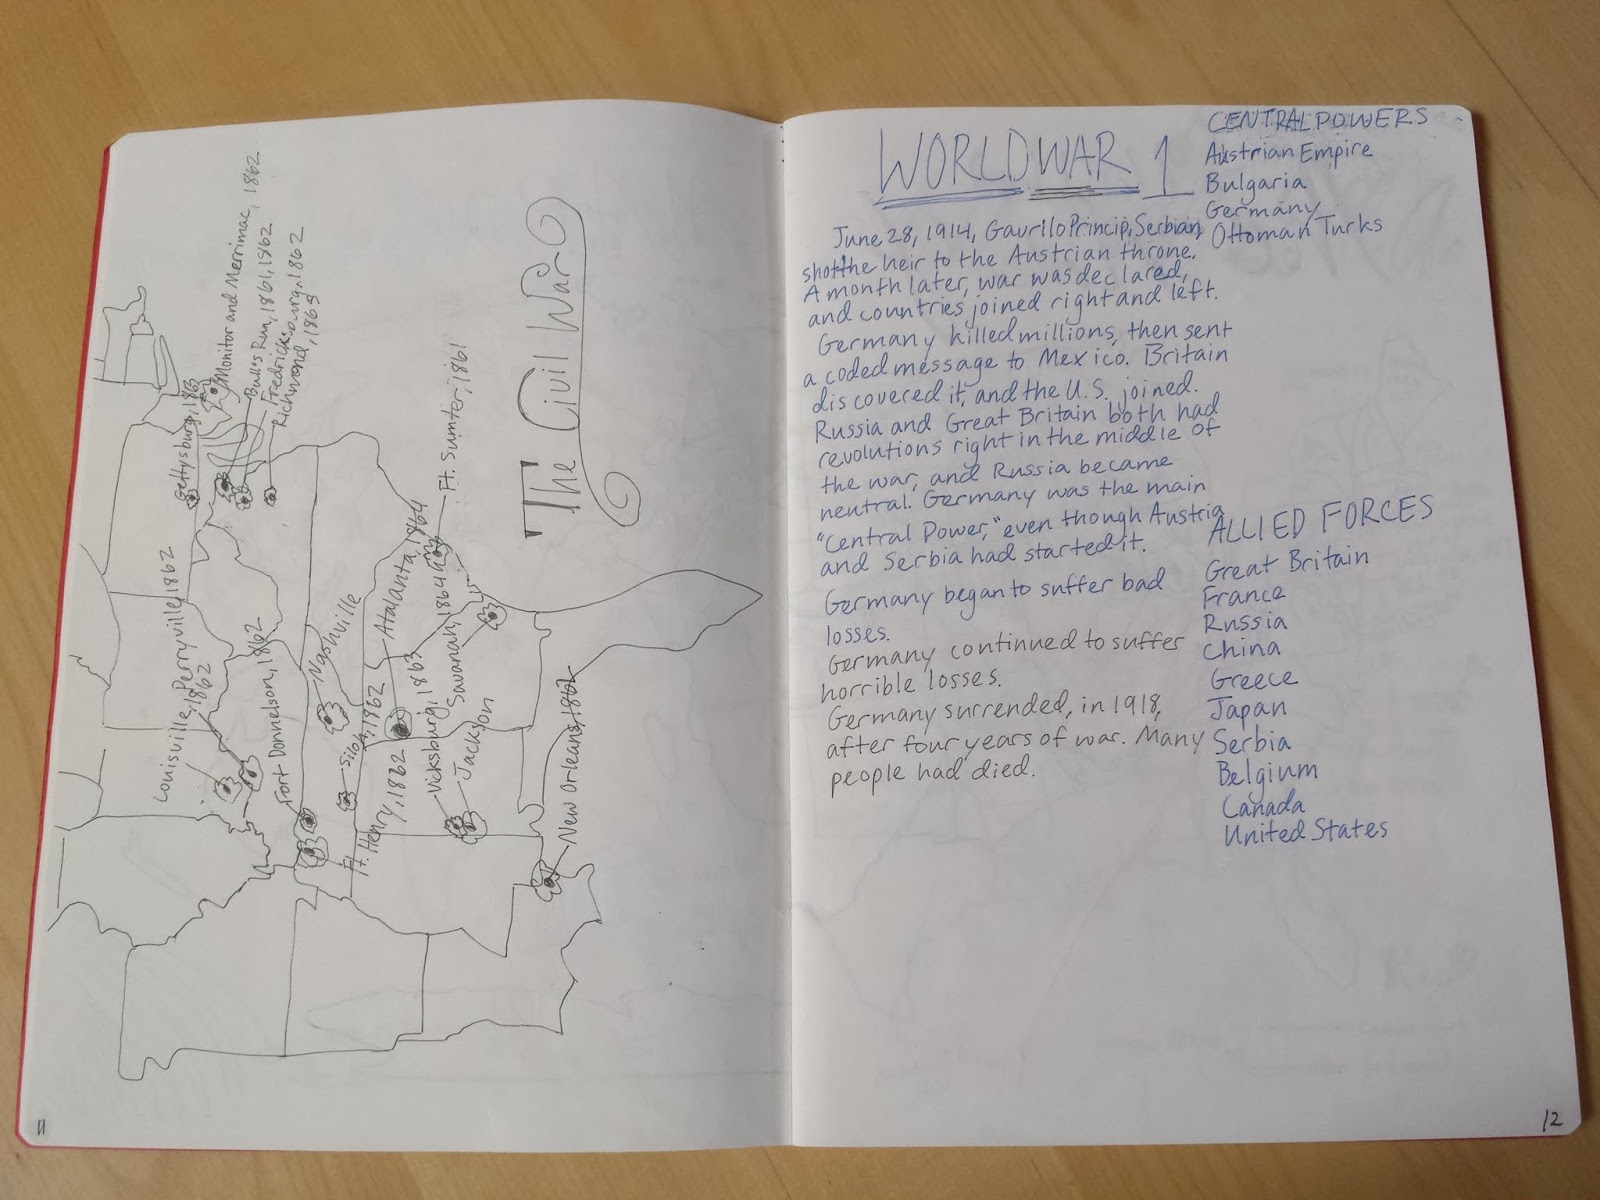 The Civil War
Monitor and Merrimac, 1862
Bulls Run, 1861, 1862
Fredricksburg, 1862
Richmond, 1865
Gettysburg, 1863
Ft. Sumter, 1861
Perryville, 1862
Louisville,
1862
Fort Donnelson, 1862
Nashville
Atalanta, 1864
Siloh, 1862
Savanah, 1864
Ft. Henry, 1862
Vicksburg, 1863
Jackson
New Orleans, 1862
11
WORLD WAR 1
June 28, 1914, Gavrilo Princip, Serbian,
shot the heir to the Austrian throne.
A month later, war was declared,
and countries joined right and left.
Germany killed millions, then sent
a coded message to Mexico. Britain
discovered it, and the U.S. joined.
Russia and Great Britain both had
revolutions right in the middle of
the war, and Russia became
neutral. Germany was the main
"Central Power," even though Austria
and Serbia had started it.
Germany began to suffer bad
losses.
Germany continued to suffer
horrible losses.
Germany surrended, in 1918,
after four years of war. Many
people had died.
CENTRAL POWERS
Austrian Empire
Bulgaria
Germany
Ottoman Turks
ALLIED FORCES
Great Britain
France
Russia
China
Greece
Japan
Serbia
Belgium
Canada
United States
12